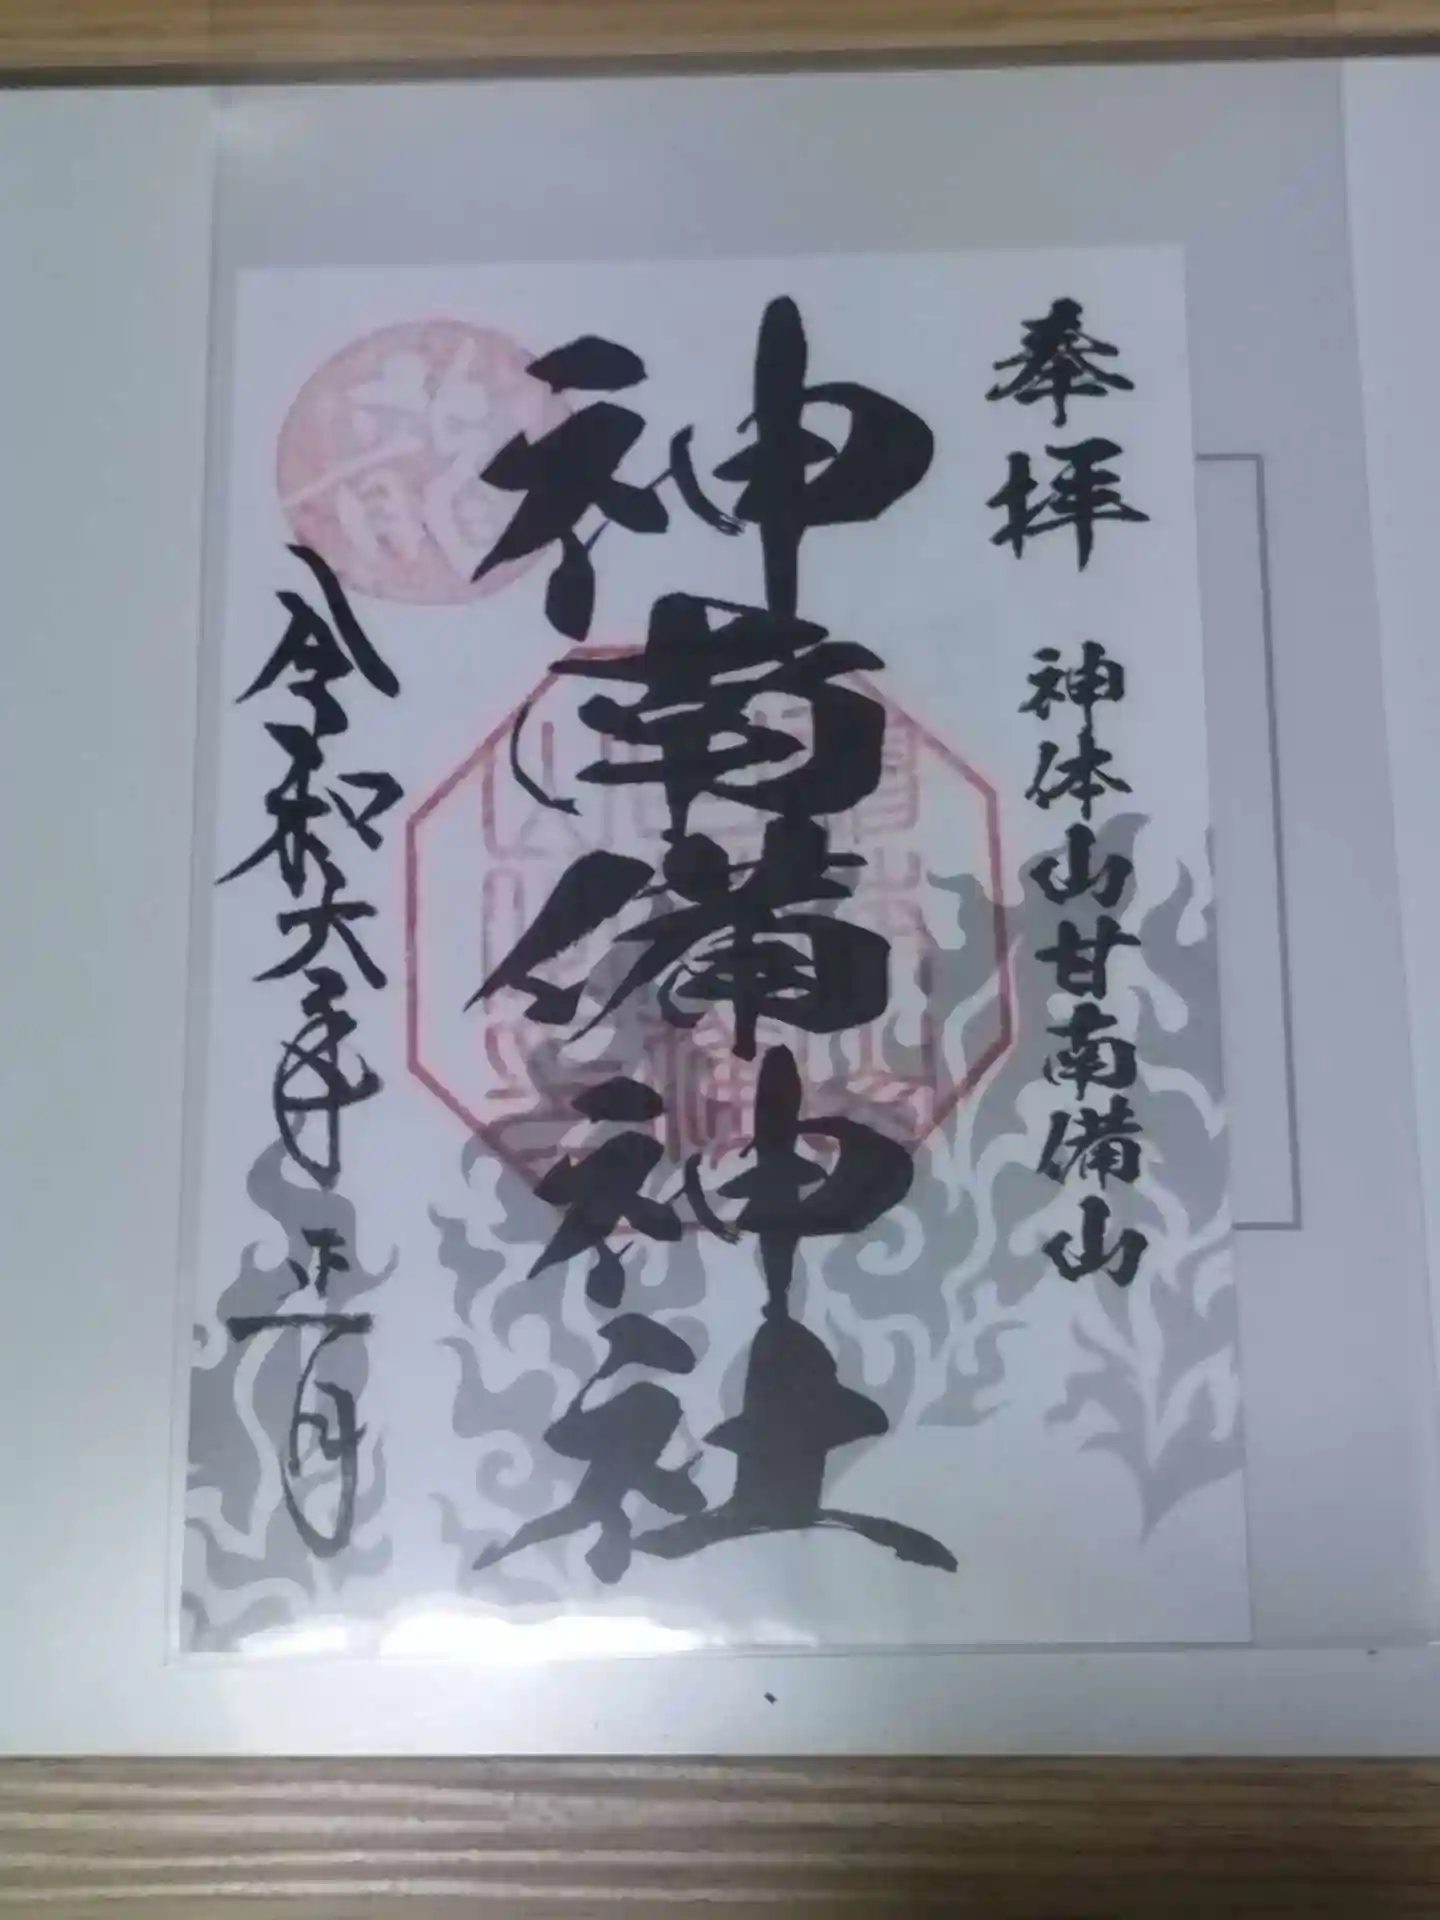 奉拝 神体山甘南備山
神南備神社
龍
令和六年正月